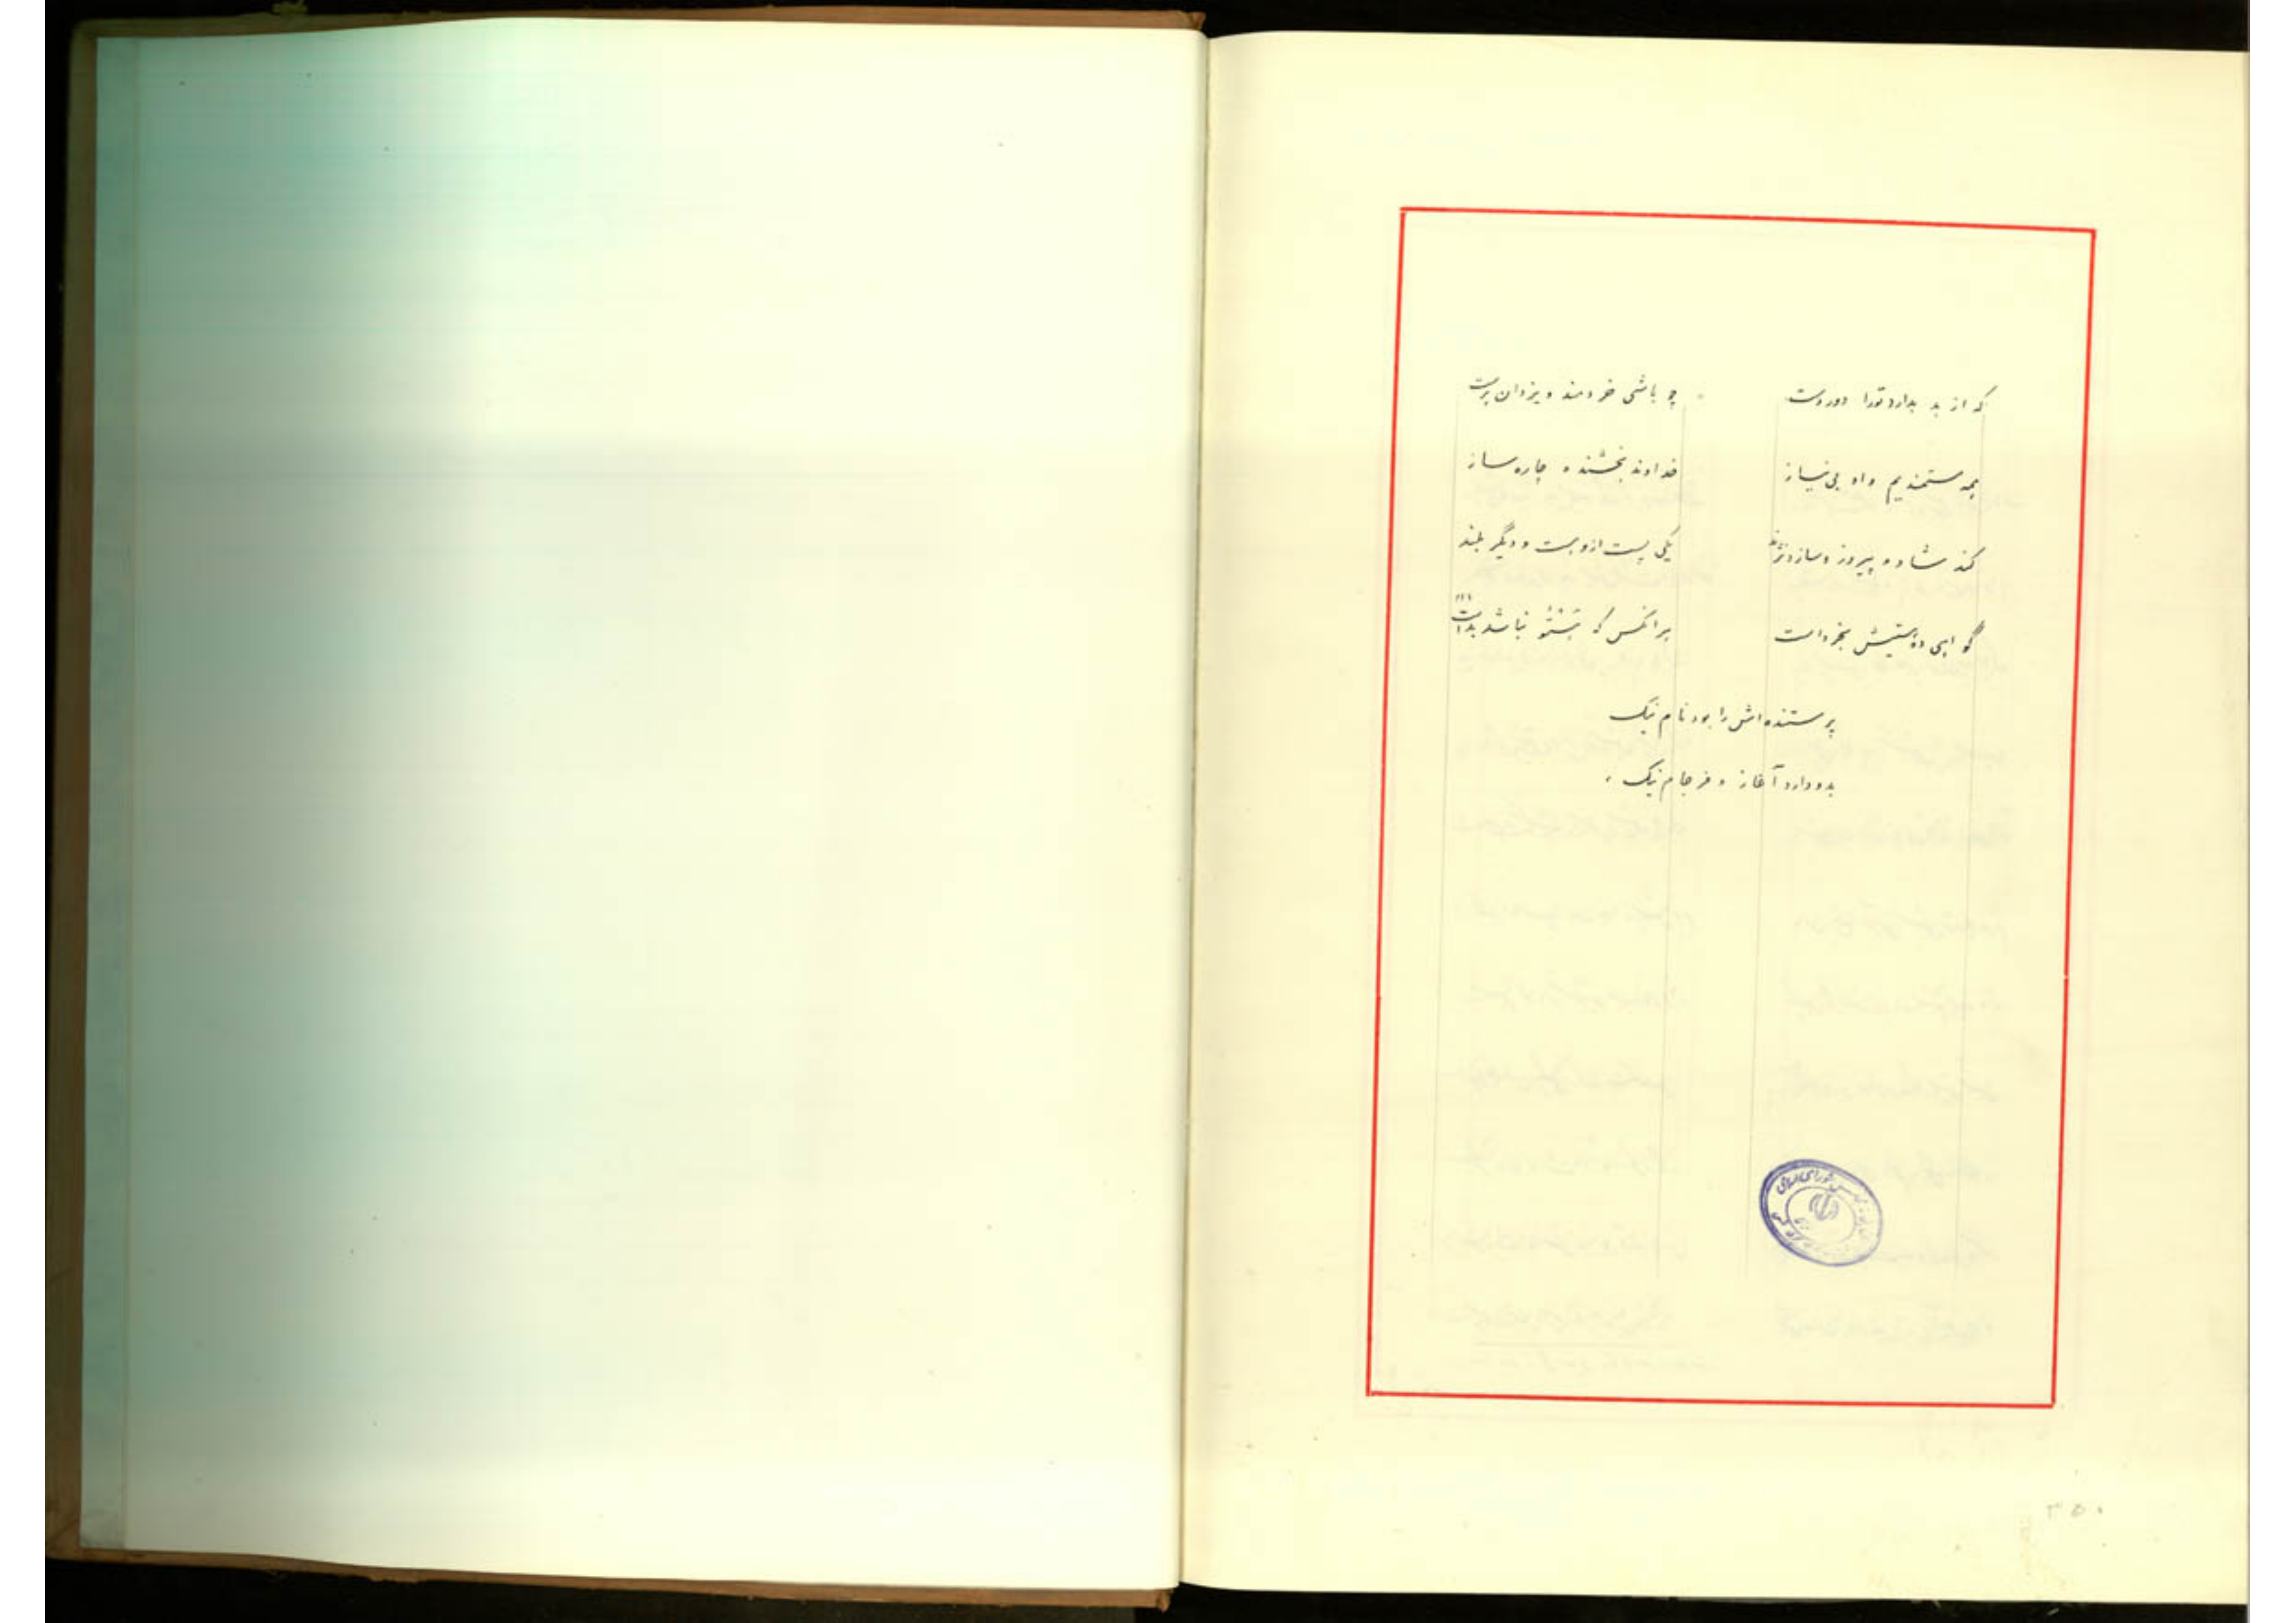 که از بد بدارد تورا دور دست چو باشی خردمند و یزدان پرست
همه مستمندیم و او بی نیاز خداوند بخشنده و چاره ساز
کند شاد و پیروز و سازد نژند یکی پست ازو هست و دیگر بلند
گواهی ده هستیش بخرد است بر آنکس که خستو نباشد بد است
پرستنده اش را بود نام نیک
بدو دارد آغاز و فرجام نیک
شورای اسلامی
۳۵۰